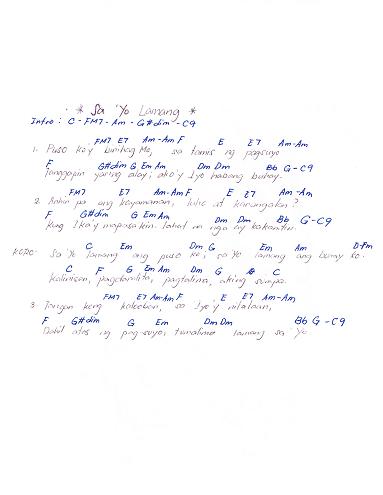 * Sa 'Yo Lamang *
Intro : C - FM7 - Am - G#dim - C9
FM7 E7 Am - Am F E E7 Am - Am
1. Puso ko'y binihag Mo, sa tamis ng pagsuyo
F G#dim G Em Am Dm Dm Bb G - C9
Tanggapin yaring alay, ako'y Iyo habang buhay.
FM7 E7 Am - Am F E E7 Am - Am
2. Anhin pa ang kayamanan, luho at karangalan?
F G#dim G Em Am Dm Dm Bb G - C9
Kung Ika'y mapasa'kin, lahat na nga ay kakamtin
C Em Dm G Em Am D-Fm
KORO: Sa 'Yo lamang ang puso ko, sa 'Yo lamang ang buhay ko.
C F G Em Am Dm G C
Kalinisan, pagdaralita, pagtalima, aking sumpa.
FM7 E7 Am - Am F E E7 Am - Am
3. Tangan kong kalooban, sa Iyo'y nilalaan,
F G#dim G Em Dm Dm Bb G - C9
Dahil atas ng pag-suyo, tumalima lamang sa 'Yo.